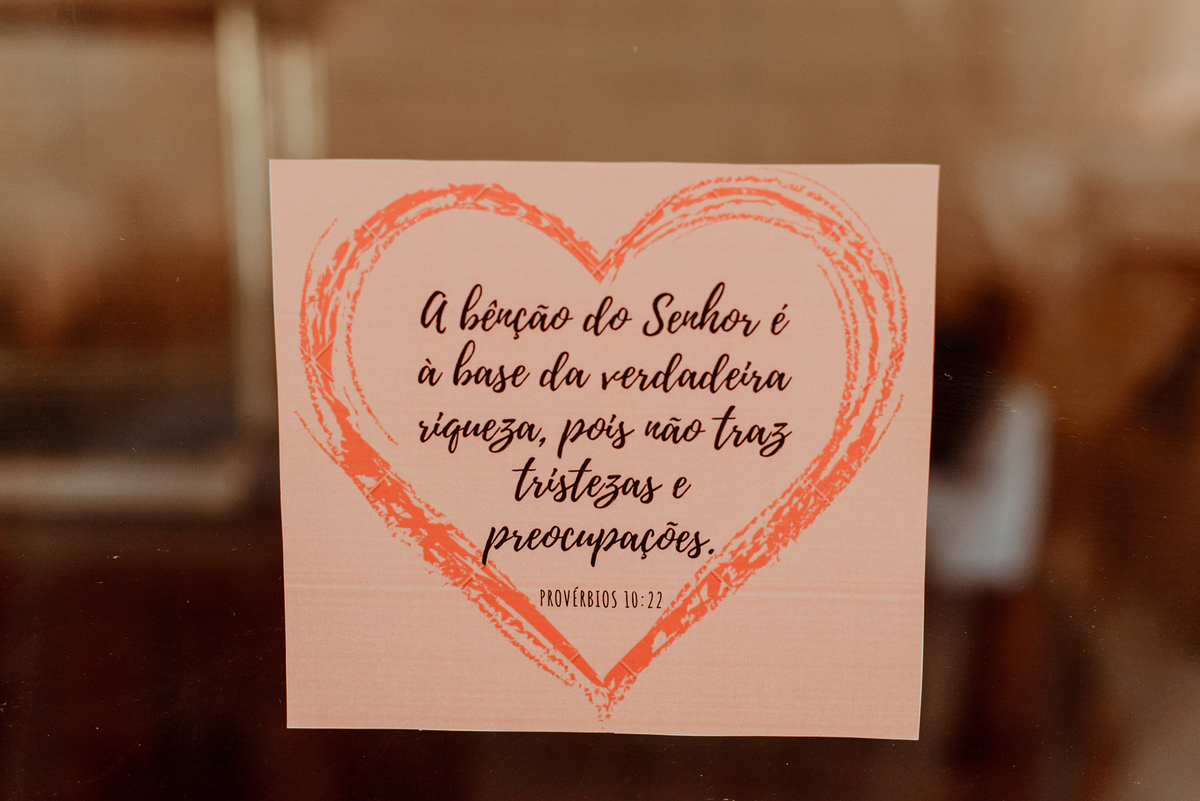 A bênção do Senhor é
à base da verdadeira
riqueza, pois não traz
tristezas e
preocupações.
PROVÉRBIOS 10:22